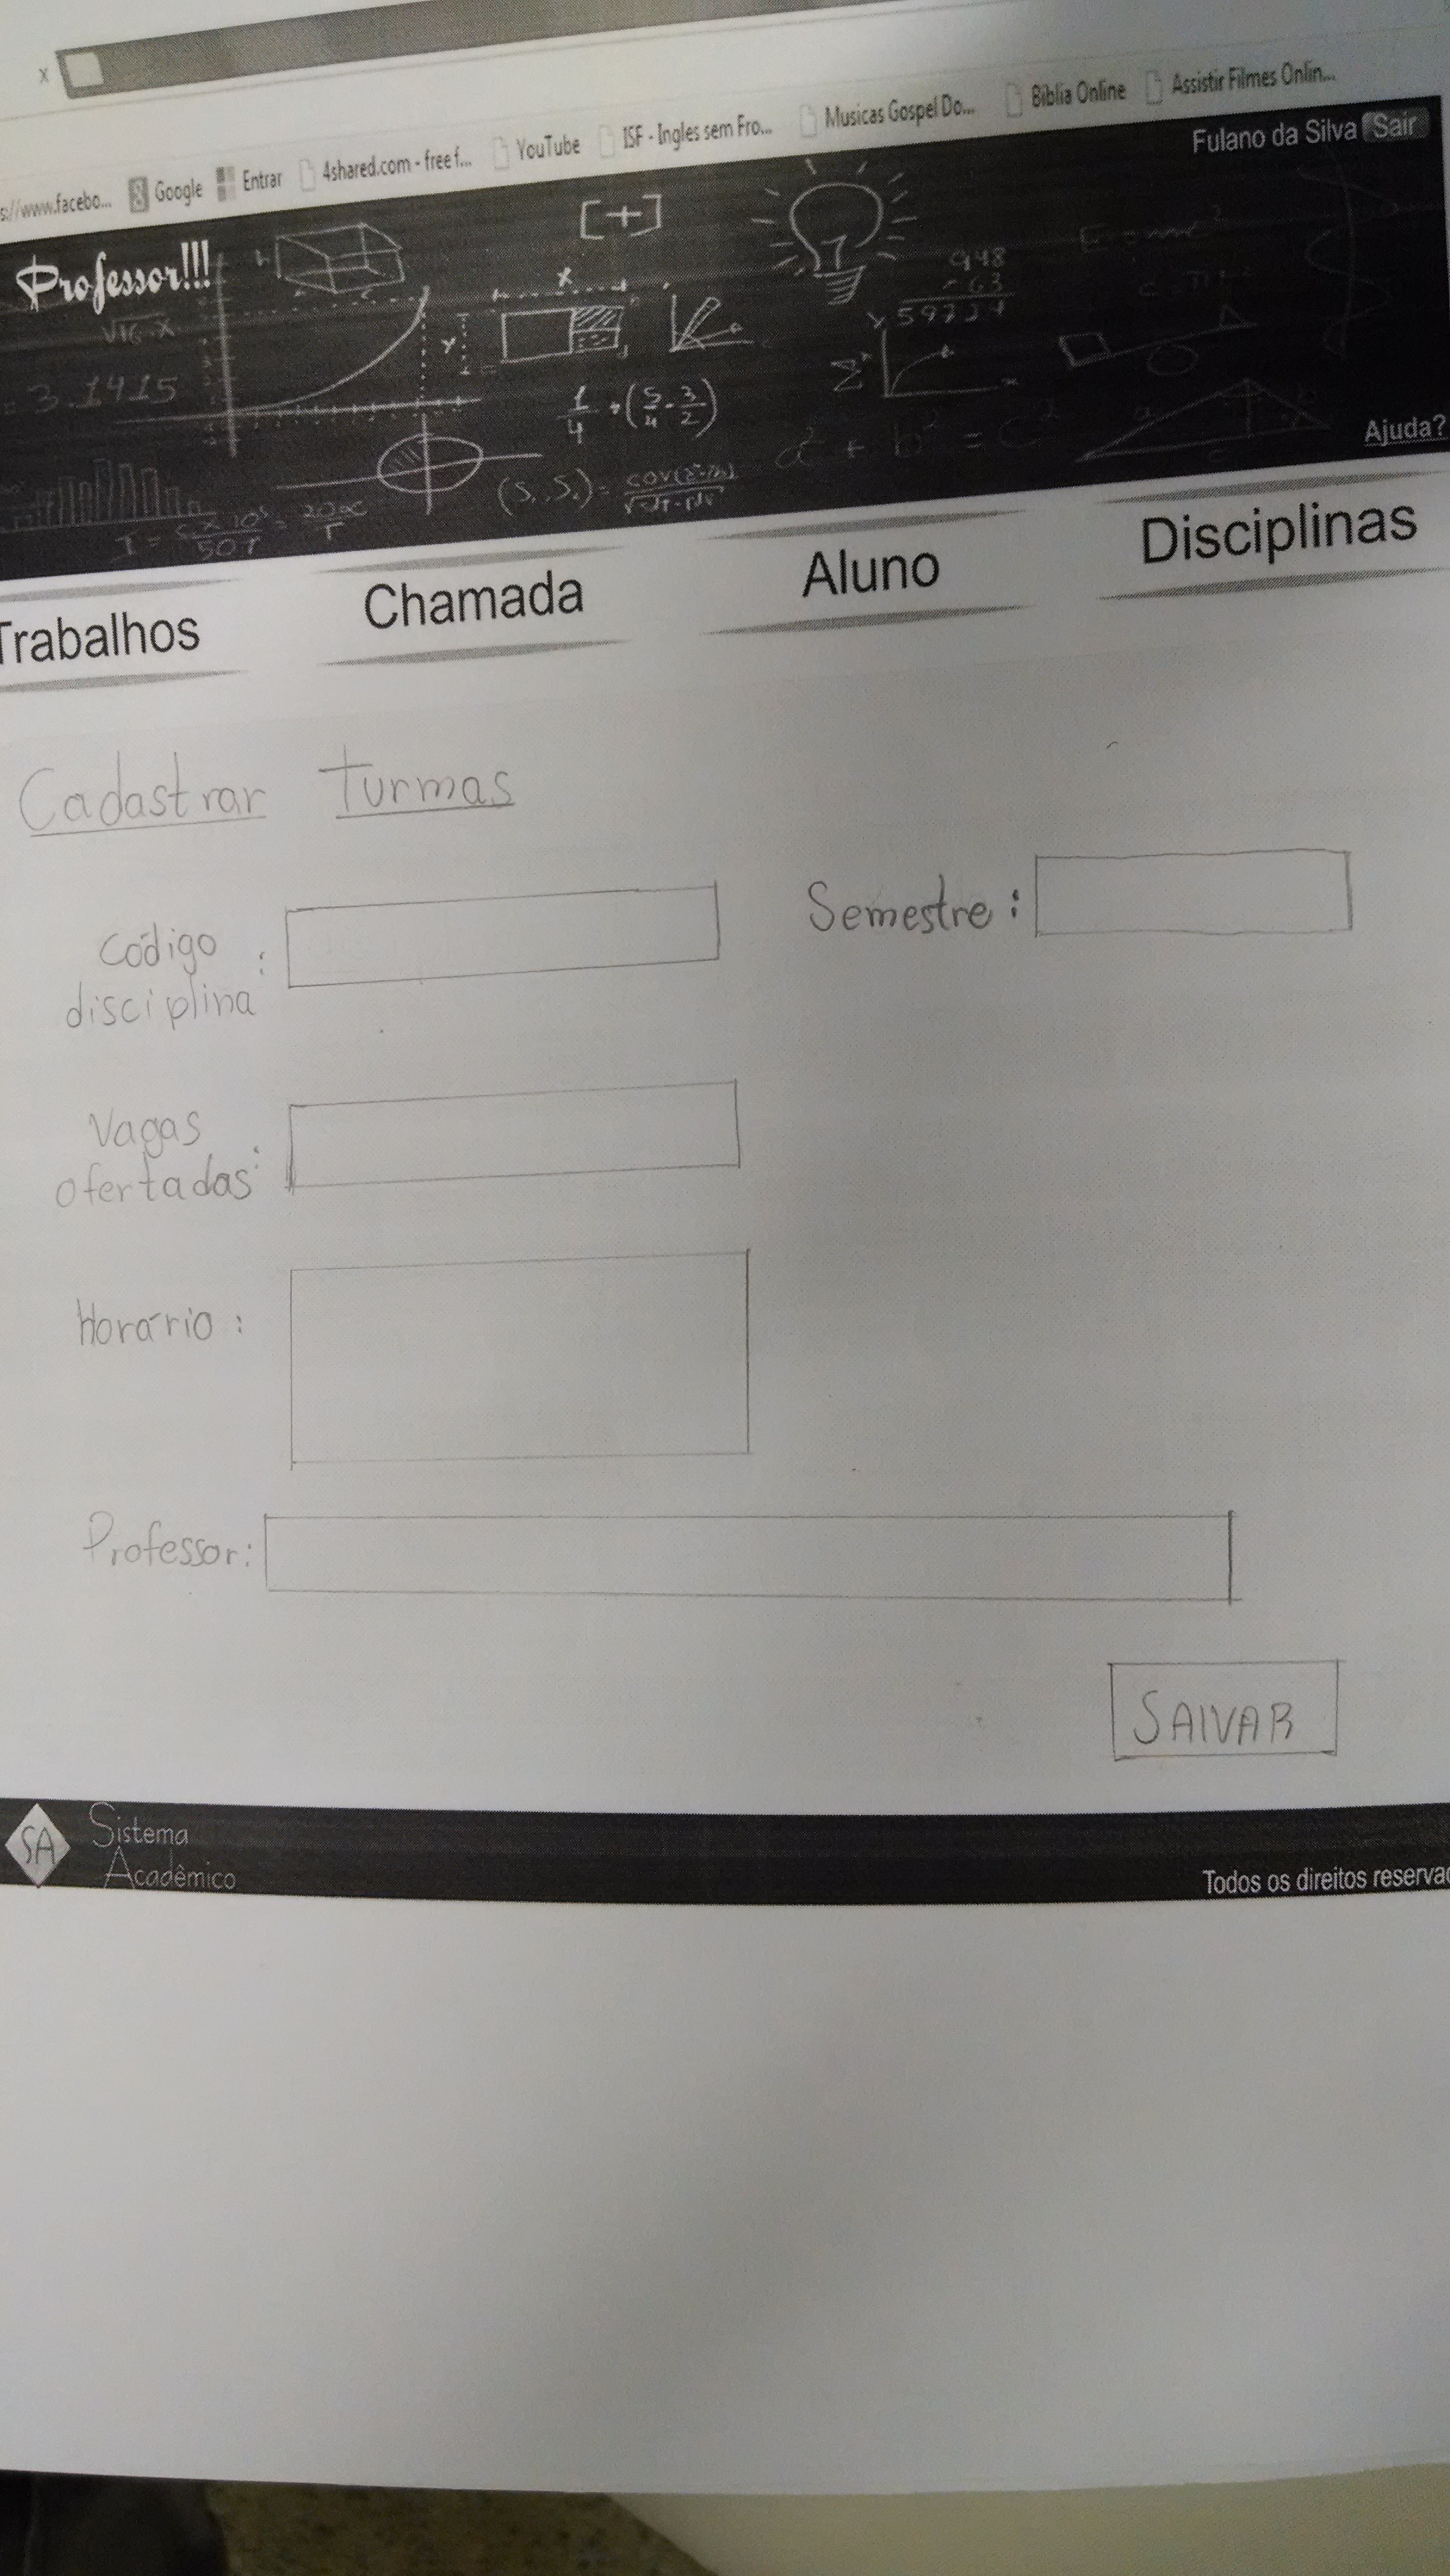 x
s://www.facebo... Google Entrar 4shared.com - free f... YouTube ISF - Ingles sem Fro... Musicas Gospel Do... Bíblia Online Assistir Filmes Onlin...
Fulano da Silva Sair
Professor!!!
[+]
x
948
63
59724
√16.x
Y
3.1415
1/4 + (5/4 - 3/2)
Σ
a² + b² = c²
Ajuda?
Trabalhos Chamada Aluno Disciplinas
Cadastrar Turmas
Código disciplina :
Semestre :
Vagas ofertadas :
Horário :
Professor:
SALVAR
SA Sistema
Acadêmico
Todos os direitos reserva